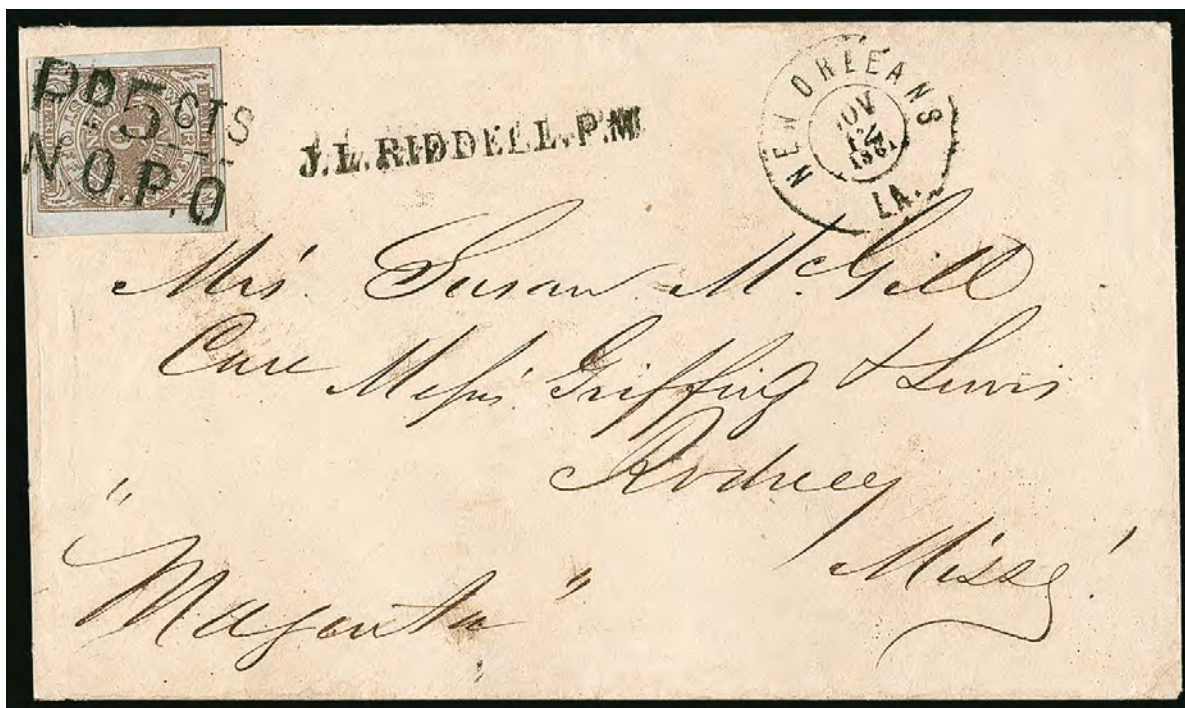 PD 5 CTS
N.O.P.O
J. L. RIDDELL. P.M
NEW ORLEANS
NOV
1861
LA.
Mrs. Susan McGill
Care Messrs. Griffing & Lewis
Rodney
Missi.
"Magenta"